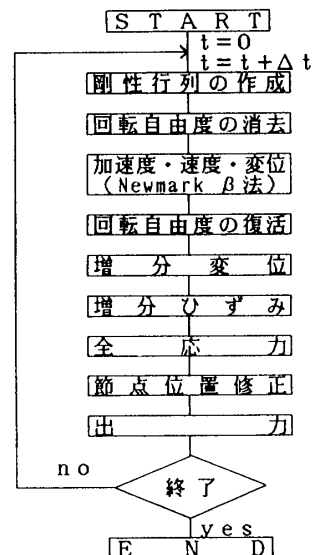 START
t=0
t=t+Δt
剛性行列の作成
回転自由度の消去
加速度・速度・変位
(Newmark β法)
回転自由度の復活
増分変位
増分ひずみ
全応力
節点位置修正
出力
no
終了
yes
END